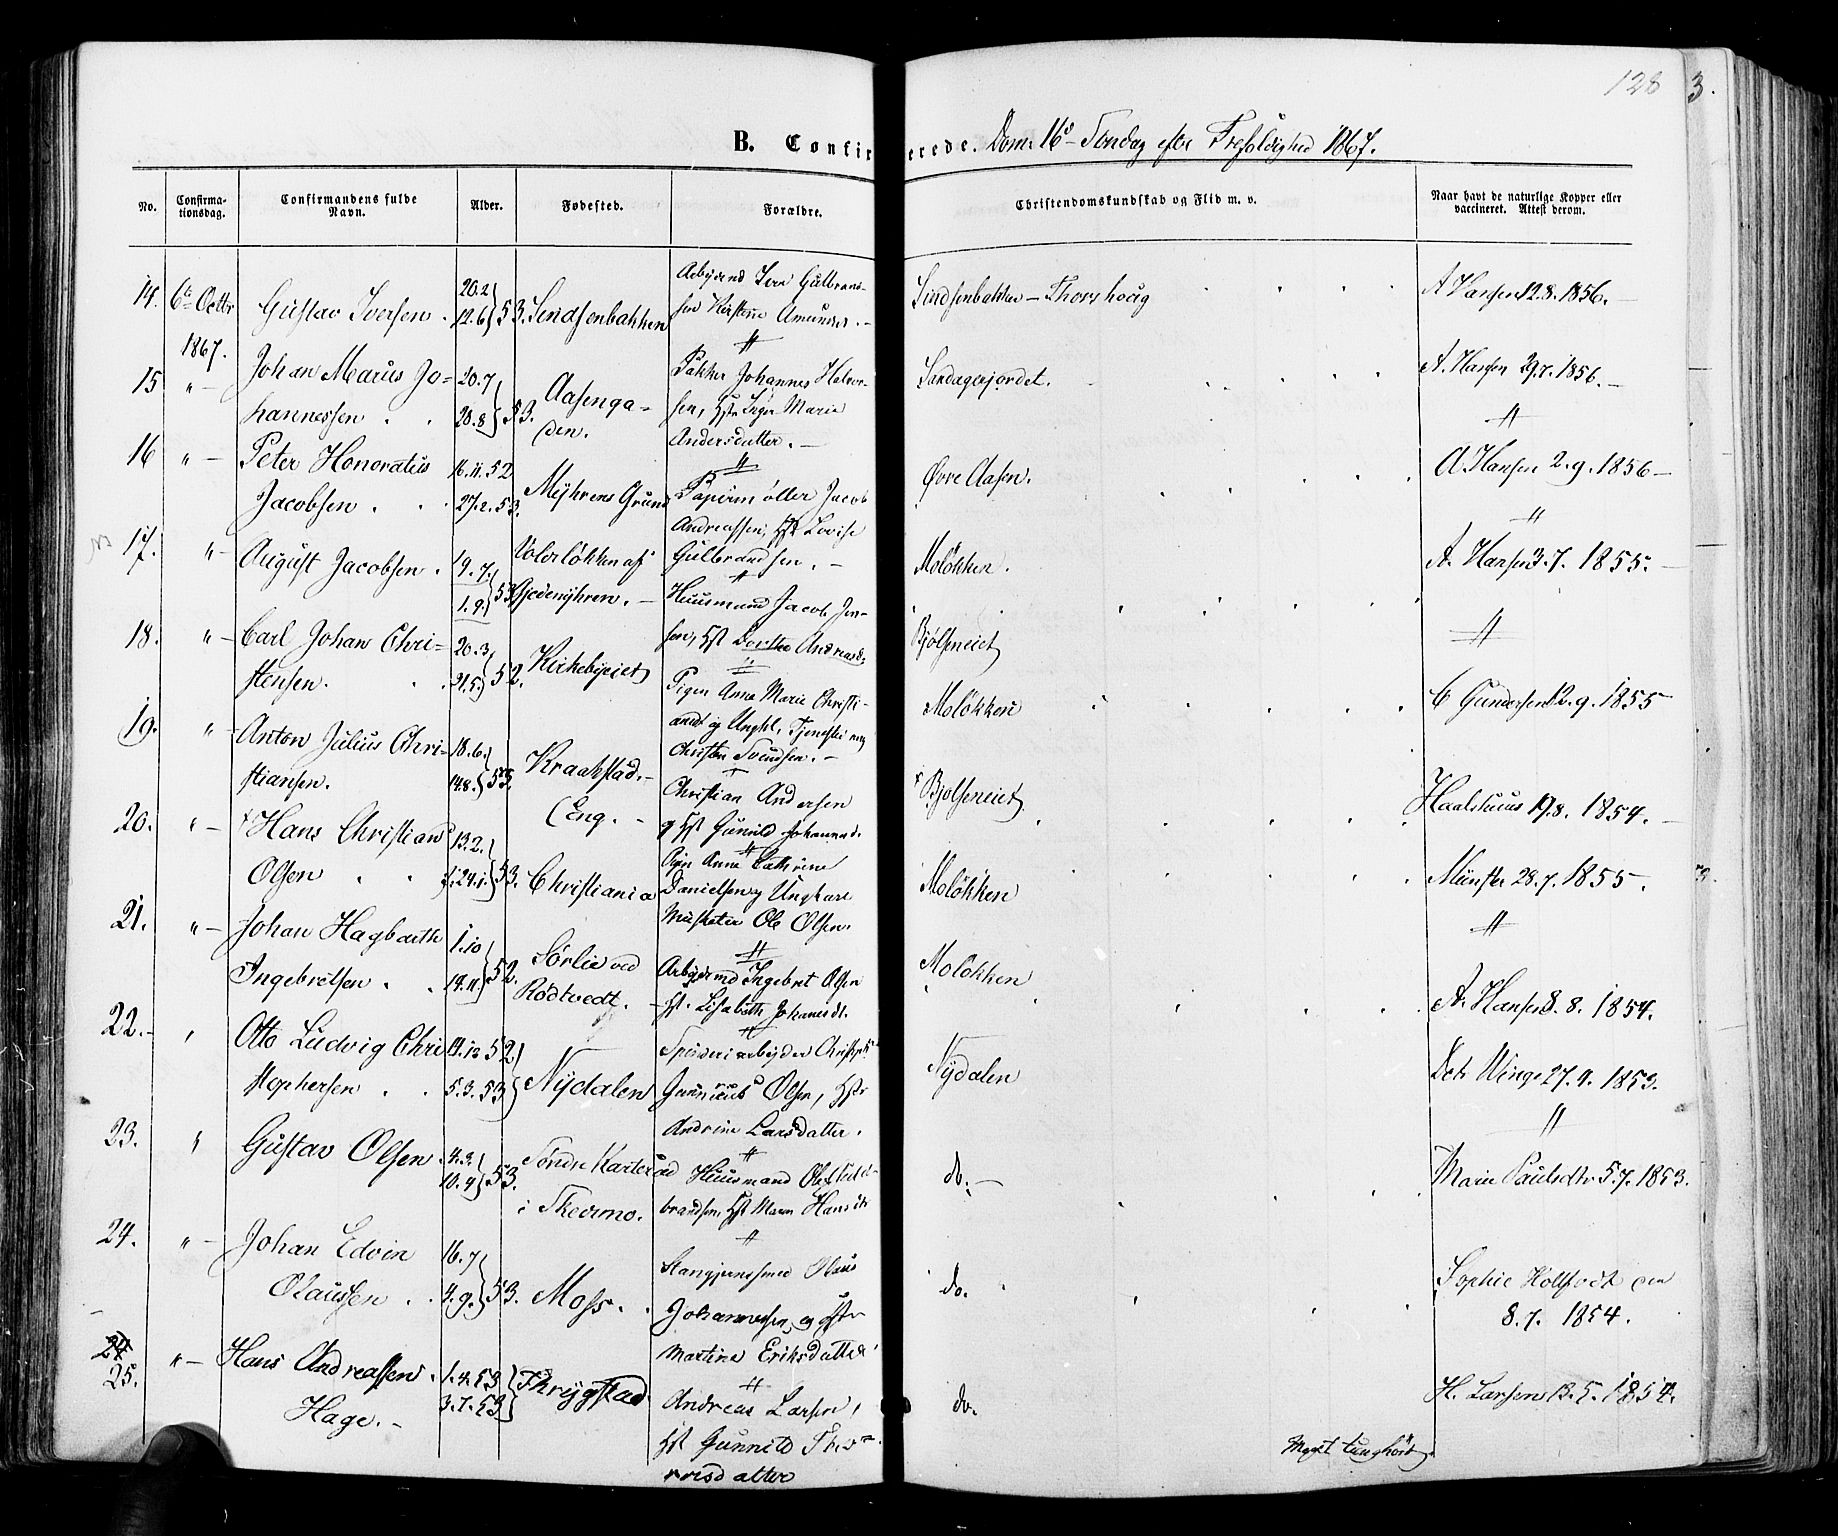 128
3.
B. Confirmerede. Dom. 16de Søndag efter Trefoldighed 1867.
No.
Confirmationsdag.
Confirmandens fulde Navn.
Alder.
Fødested.
Forældre.
Christendomskundskab og Flid m. v.
Naar havt de naturlige Kopper eller vaccineret. Attest derom.
14. 6te Octbr 1867. Gustav Iversen. 20.2 12.6 } 53. Lindsenbakken
Iver Gulbrans-
sen Kirstine Amundsd. —
Lindsenbakken — Thorshoug
A Hansen 12.8.1856. —
15 " — Johan Marius Jo-
hannessen . . 20.7 20.8 } 53. Aasenga-
den.
Pakker Johannes Halvor-
sen, Hst Inger Marie
Andersdatter. —
A. Hansen 29.7.1856. —
16 " — Peter Honoratus
Jacobsen . . 16.11.52 27.2.53. Myhrens Grund
Papirmøller Jacob
Andreassen, Hst Lovise
Gulbrandsen. —
Øvre Aasen.
A Hansen 2.9.1856 —
17. " — August Jacobsen. 19.7. 1.9. } 53
Huusmand Jacob Jen-
sen, Hst Dorthea Andreasd.
Moløkken.
A. Hansen 3.7.1855. —
18. " — Carl Johan Chri-
stensen. 20.3 31.5. } 52. Kirkebyeiet
Pigen Anna Marie Christi-
ansd og Ungkl.
Christen Svendsen. —
Bjølseneiet
C Gundersen 12.9.1855
19. " — Anton Julius Chri-
stiansen. 18.6. 14.8. } 53. Kraakstad. —
(Eng. —
Christian Andersen
og Hst Gunild Johannesd.
Moløkken
Haalshuus 19.8.1854. —
20. " — Hans Christian
Olsen . . 13.2. 24.1. } 53. Christiania
Pigen Anna Cathrine
Danielsen og Ungkarl
Musketer Ole Olsen.
Bjølseneiet
Münster 28.7.1855.
21. " — Johan Hagbarth
Ingebretsen . . 1.10 19.11. } 52. Sørlie ved
Rødtvedt.
Arbeidsmd Ingebret Olsen
Hst. Lisabeth Johanesdt.
Moløkken
A. Hansen 8.8.1854.
22. " Otto Ludvig Chri
stophersen . . 19.12 52 5.3.53 } Nydalen
Spinneriarbeider Christoph
Gunnerius Olsen, Hstr
Andrine Larsdatter.
Moløkken
Dctr Winge 27.9.1853.
23. " Gustav Olsen. 4.3. 10.4 } 53. Søndre Karterud
i Skedsmo.
Huusmand Ole Gul-
brandsen, Hst Maren Hansdtr
Nydalen
Maren Paulsdtr 5.7.1853.
24. " — Johan Edvin
Olaussen . . 16.7 4.9. } 53. Moss. .
Stangjernssmed Olaus
Johannessen og Hstr
Martine Eriksdatter
do. —
Sophie Holfeldt den
8.7.1854.
24
25. " — Hans Andreassen
Hage. — 1.4.53 3.7.53 } Thrygstad
Andreas Larsen,
Hst Gunnild
do.
do.
H. Larsen 13.5.1854.
Meget tunghørt.